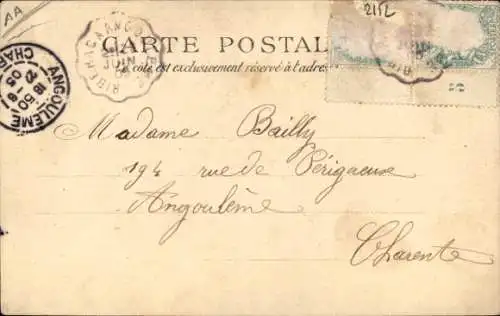 AA
2152
CARTE POSTALE
Ce côté est exclusivement réservé à l'adresse
ANGOULEME
18 50
2 6
05
CHAR
JUIN
Madame Bailly
194 rue de Périgueux
Angoulême
Charente